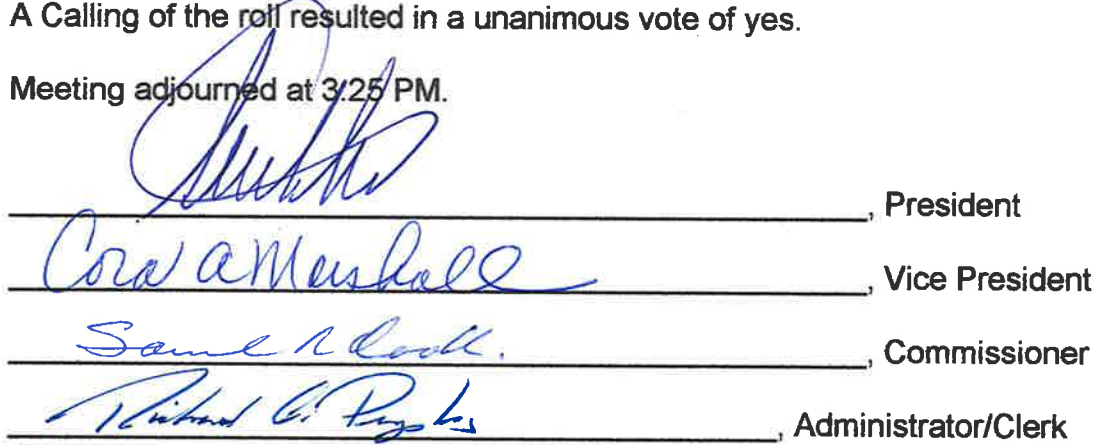 A Calling of the roll resulted in a unanimous vote of yes.
Meeting adjourned at 3:25 PM.
, President
Cora A Marshall, Vice President
, Commissioner
Richard, Administrator/Clerk